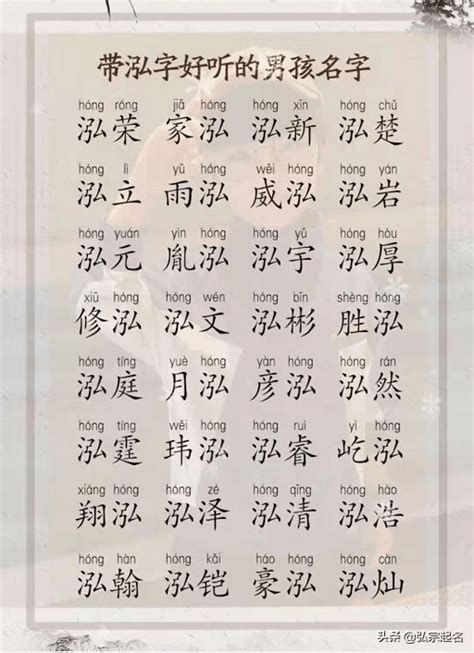 带泓字好听的男孩名字
hóng róng jiā hóng hóng xīn hóng chǔ
泓荣 家泓 泓新 泓楚
hóng lì yǔ hóng wēi hóng hóng yán
泓立 雨泓 威泓 泓岩
hóng yuán yìn hóng hóng yǔ hóng hòu
泓元 胤泓 泓宇 泓厚
xiū hóng hóng wén hóng bīn shèng hóng
修泓 泓文 泓彬 胜泓
hóng tíng yuè hóng yàn hóng hóng rán
泓庭 月泓 彦泓 泓然
hóng tíng wěi hóng hóng ruì yì hóng
泓霆 玮泓 泓睿 屹泓
xiáng hóng hóng zé hóng qīng hóng hào
翔泓 泓泽 泓清 泓浩
hóng hàn hóng kǎi háo hóng hóng càn
泓翰 泓铠 豪泓 泓灿
头条 @弘宗起名